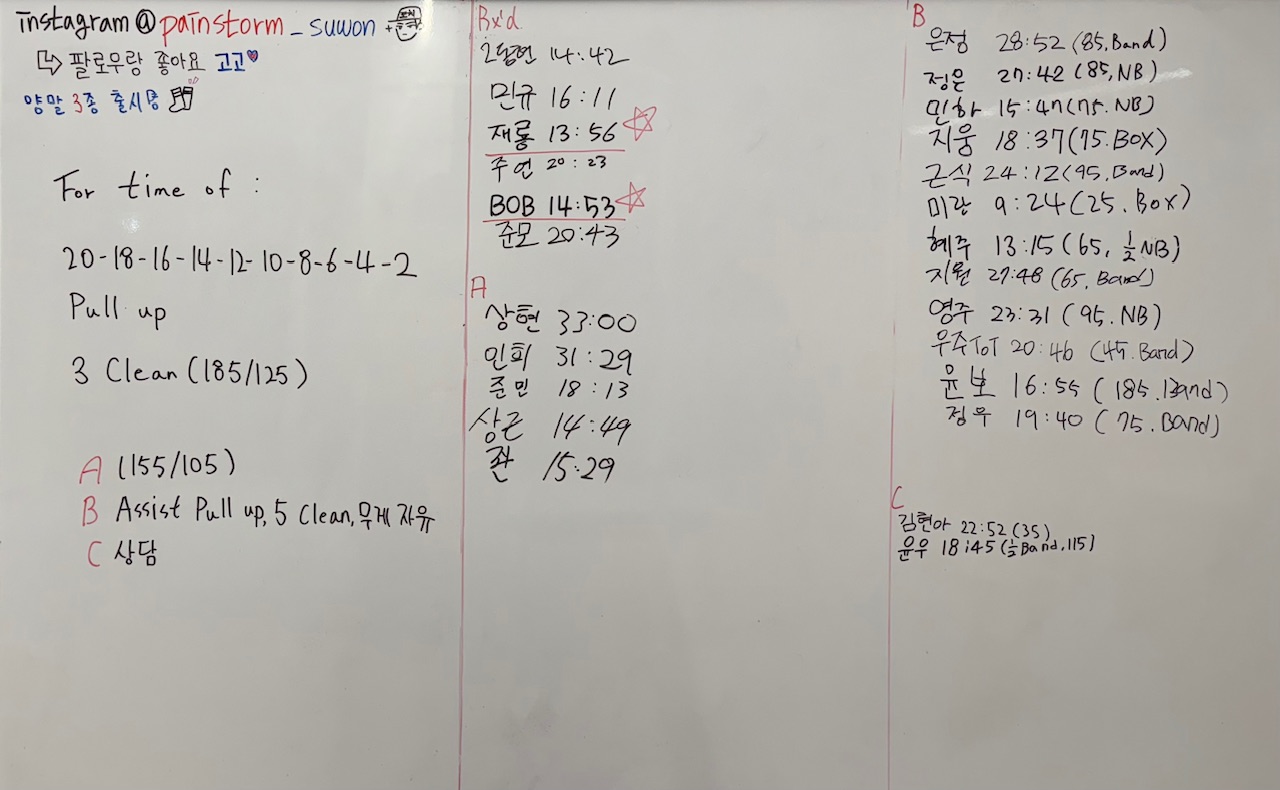 instagram@painstorm_suwon
팔로우랑 좋아요 고고
양말 3종 출시중
For time of :
20-18-16-14-12-10-8-6-4-2
Pull up
3 Clean (185/125)
A (155/105)
B Assist Pull up, 5 Clean, 무게 자유
C 상담
Rx'd
14:42
민규 16:11
재룡 13:56
주연 20:23
BOB 14:53
준모 20:43
A
상현 33:00
인희 31:29
준민 18:13
상근 14:49
15:29
B
은정 28:52 (85, Band)
정은 27:42 (85, NB)
민하 15:47 (75. NB)
지웅 18:37 (75. BOX)
근식 24:12 (95, Band)
미란 9:24 (25. Box)
혜주 13:15 (65, ½ NB)
지원 27:48 (65, Band)
영주 23:31 (95. NB)
우주ToT 20:46 (45. Band)
윤보 16:55 (185. Band)
정우 19:40 (75. Band)
C
김현아 22:52 (35)
윤우 18:45 (½ Band, 115)